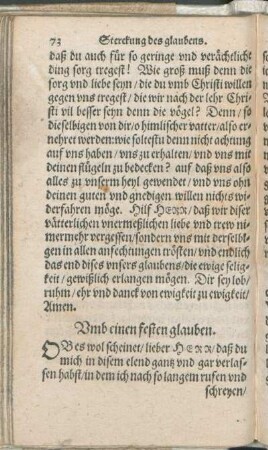 73 Sterckung des glaubens.
daß du auch für so geringe vnd verächtlich
ding sorg tregest! Wie groß muß denn die
sorg vnd liebe seyn/ die du vmb Christi willen
gegen vns tregest/ die wir nach der lehr Chri-
sti vil besser seyn denn die vögel? Denn/ so
dieselbigen von dir/ o himlischer vatter/ also er-
nehret werden: wie soltestu denn nicht achtung
auf vns haben/ vns zu erhalten/ vnd vns mit
deinen flügeln zu bedecken? auf daß vns also
alles zu vnserm heyl gewendet/ vnd vns ohn
deinen guten vnd gnedigen willen nichts wi-
derfahren möge. Hilf HERR/ daß wir diser
vätterlichen vnermeßlichen liebe vnd trew ni-
mermehr vergessen/ sondern vns mit derselbi-
gen in allen anfechtungen trösten/ vnd endlich
das end dises vnsers glaubens/ die ewige selig-
keit/ gewißlich erlangen mögen. Dir sey lob/
ruhm/ ehr vnd danck von ewigkeit zu ewigkeit/
Amen.
Vmb einen festen glauben.
OBes wol scheinet/ lieber HERR/ daß du
mich in disem elend gantz vnd gar verlas-
sen habst/ in dem ich nach so langem rufen vnd
schreyen/